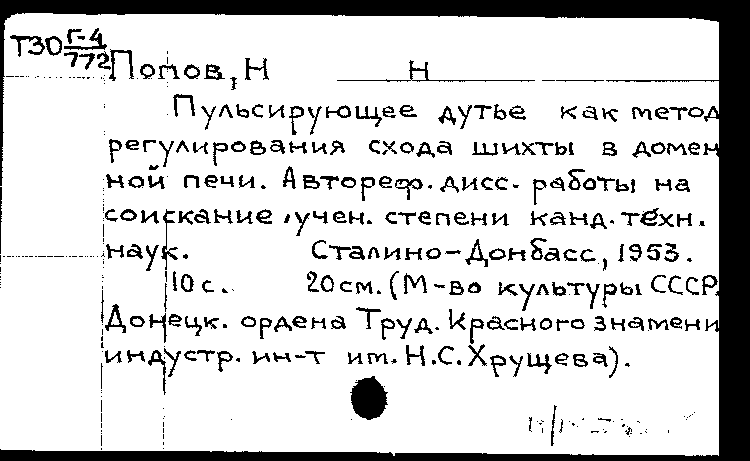 Т30 Г-4/772
Попов, Н Н
Пульсирующее дутье как метод
регулирования схода шихты в домен
ной печи. Автореф. дисс. работы на
соискание учен. степени канд. техн.
наук. Сталино-Донбасс, 1953.
10 с. 20 см. (М-во культуры СССР.
Донецк. ордена Труд. Красного Знамени
индустр. ин-т им. Н.С. Хрущева).